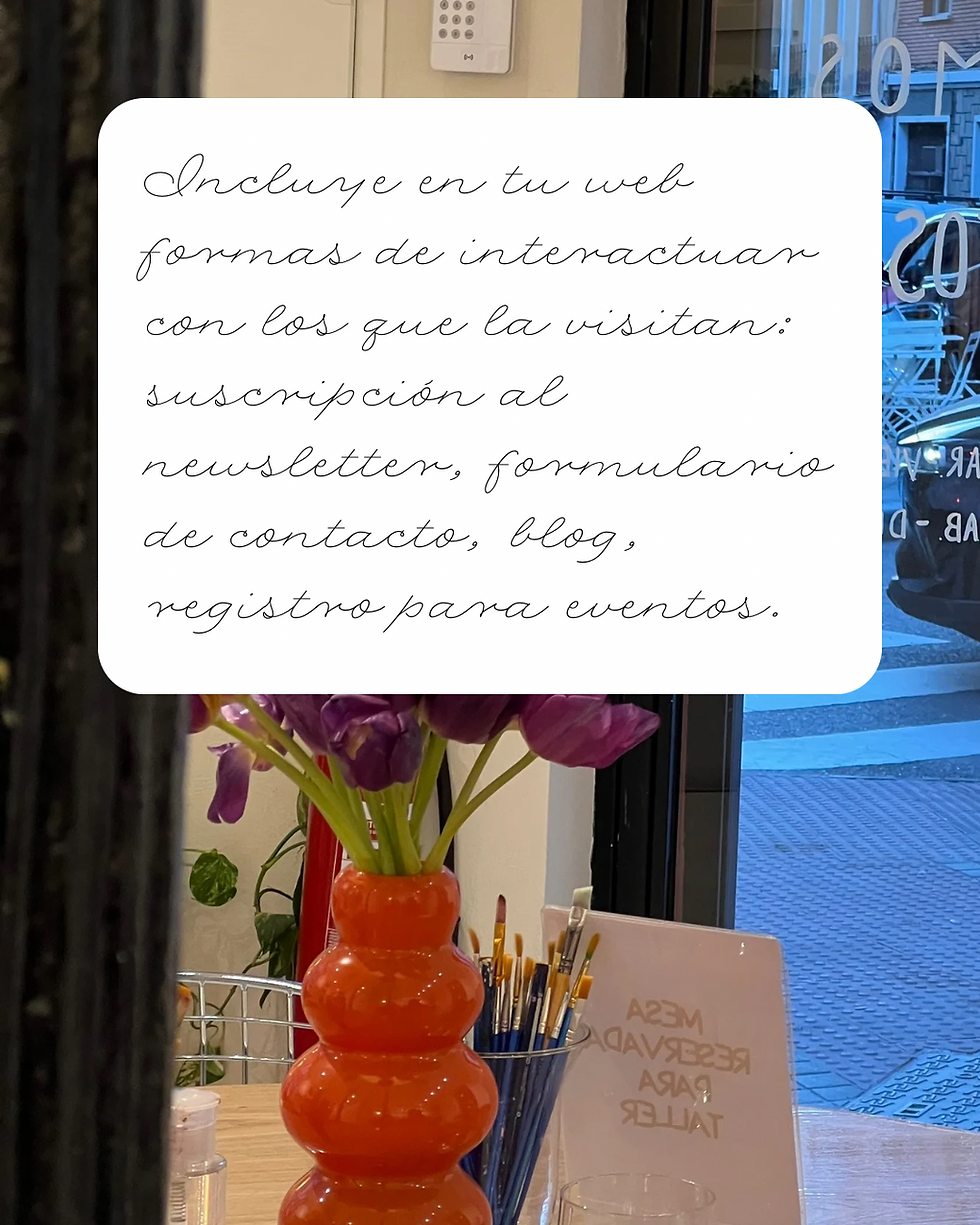 Incluye en tu web
formas de interactuar
con los que la visitan:
suscripción al
newsletter, formulario
de contacto, blog,
registro para eventos.
MESA
RESERVADA
PARA
TALLER